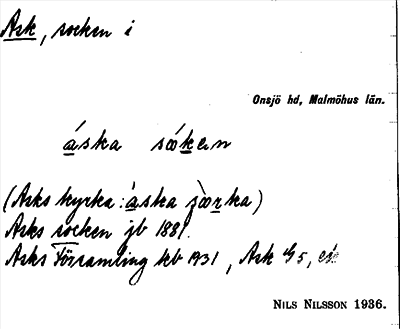 Ask, socken i
Onsjö hd, Malmöhus län.
áska sóken
(Asks kyrka: áska
Asks socken jb 1881.
Asks Församling kb 1931, Ask
NILS NILSSON 1936.